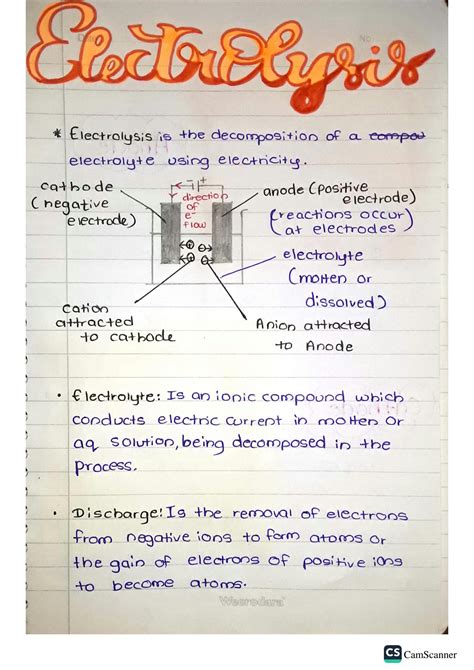 Electrolysis
No
* Electrolysis is the decomposition of a compou
electrolyte using electricity.
cathode
(negative
electrode)
- +
direction
of
e-
flow
anode (positive
electrode)
(reactions occur)
at electrodes
electrolyte
(molten or
dissolved)
cation
attracted
to cathode
Anion attracted
to Anode
• Electrolyte: Is an ionic compound which
conducts electric current in molten or
aq solution, being decomposed in the
process.
• Discharge: Is the removal of electrons
from negative ions to form atoms or
the gain of electrons of positive ions
to become atoms.
Weerodara
CS CamScanner